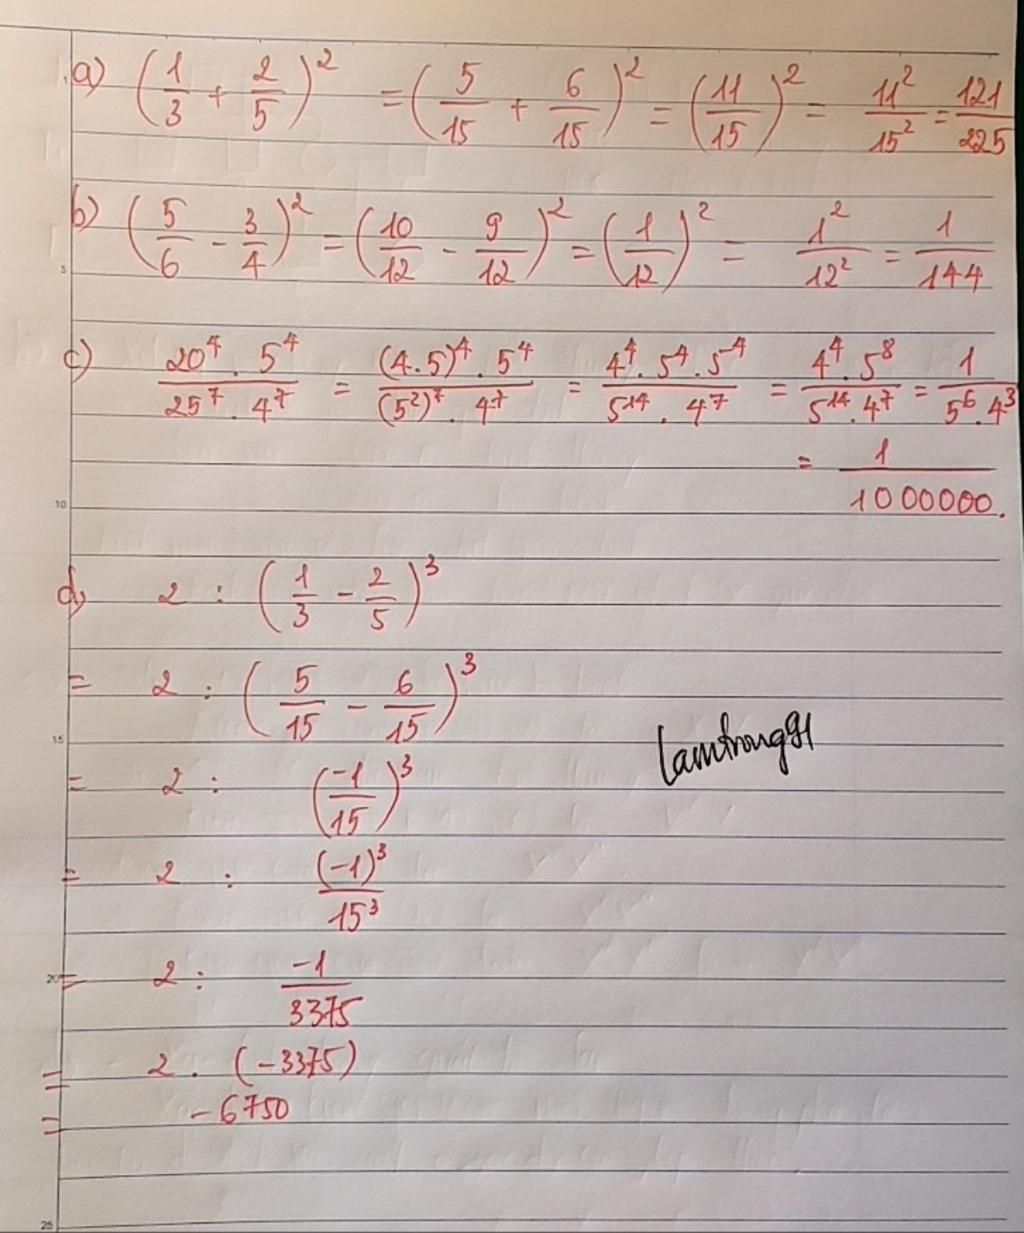 a) (1/3 + 2/5)² = (5/15 + 6/15)² = (11/15)² = 11²/15² = 121/225
b) (5/6 - 3/4)² = (10/12 - 9/12)² = (1/12)² = 1²/12² = 1/144
5
c) 20⁴ . 5⁴ / 25⁷ . 4⁷ = (4.5)⁴ . 5⁴ / (5²)⁷ . 4⁷ = 4⁴ . 5⁴ . 5⁴ / 5¹⁴ . 4⁷ = 4⁴ . 5⁸ / 5¹⁴ . 4⁷ = 1 / 5⁶ . 4³
= 1/1000000.
10
d, 2 : (1/3 - 2/5)³
= 2 : (5/15 - 6/15)³
15
lamtrong91
= 2 : (-1/15)³
= 2 : (-1)³/15³
20
= 2 : -1/3375
= 2 . (-3375)
= -6750
25